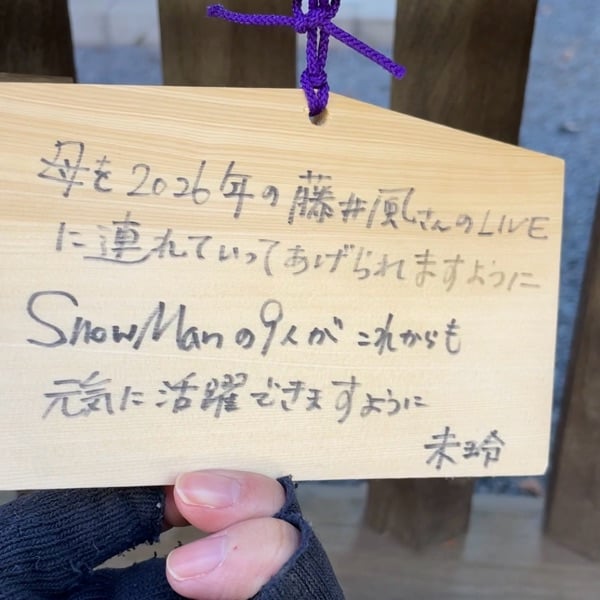 母を2026年の藤井風さんのLIVE
に連れていってあげられますように
SnowManの9人がこれからも
元気に活躍できますように
未玲